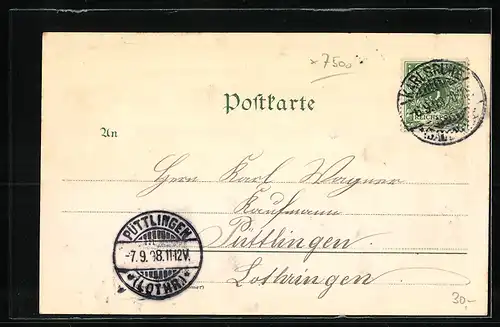 x 7500
KARLSRUHE
5
REICHSPOST
Postkarte
An
Herrn Karl Wagner
Kaufmann
Püttlingen
Lothringen
PÜTTLINGEN
-7.9.98.11-12V.
*(LOTHR.)*
30,-